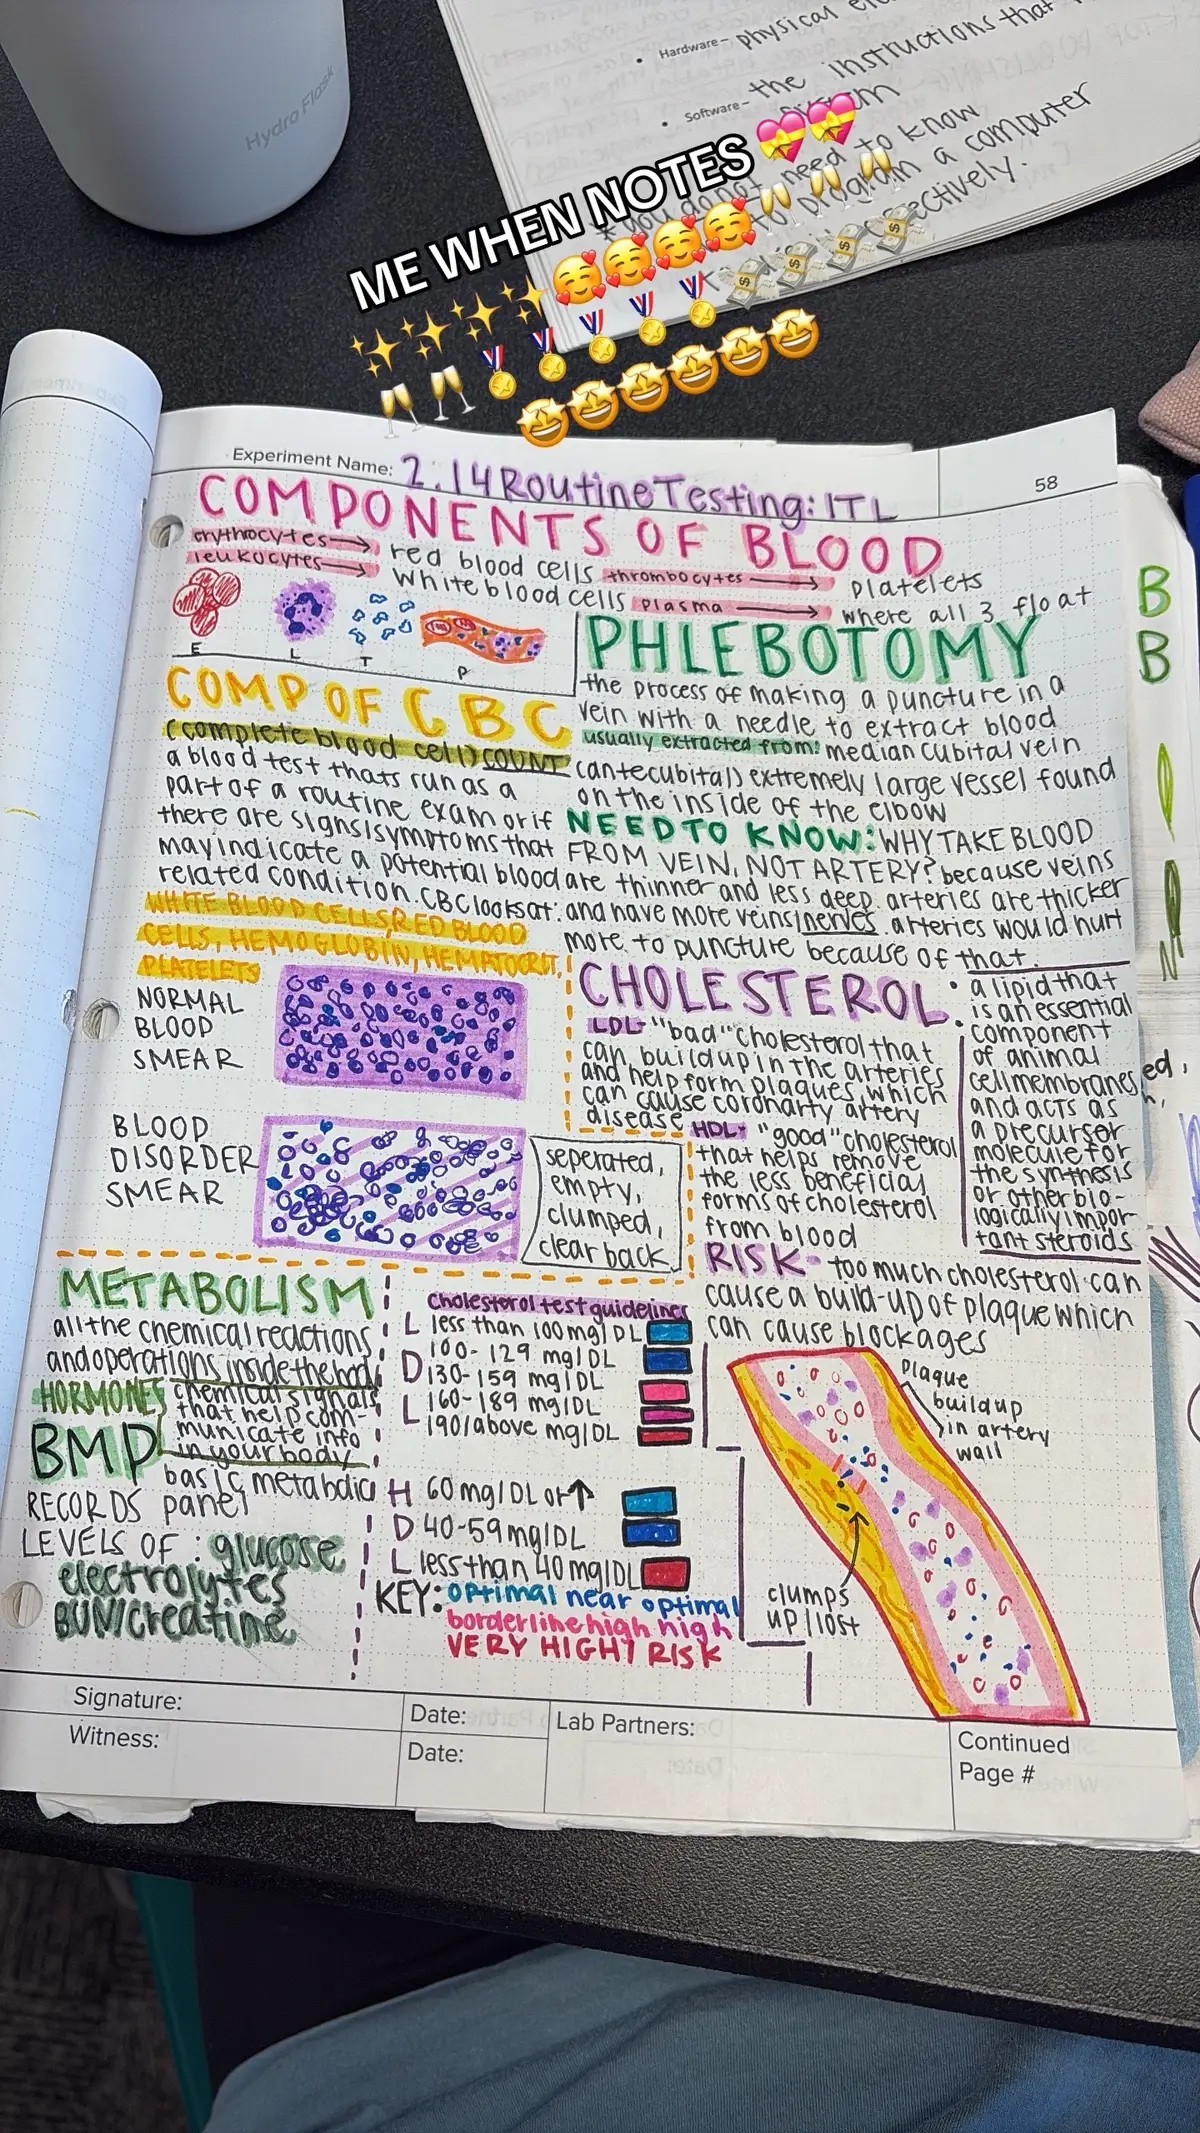 Hydro Flask
Hardware- physical
Software- the instructions that
need to know
program a computer
ectively.
ME WHEN NOTES 💝💝
✨✨✨✨🥰🥰🥰🥰🥂🥂🥂
🥂🥂🏅🏅🏅🏅🏅💸💸💸💸
🤩🤩🤩🤩🤩🤩
Experiment Name: 2.14 Routine Testing: ITL
58
COMPONENTS OF BLOOD
erythrocytes → red blood cells thrombocytes → platelets
leukocytes → white blood cells plasma → where all 3 float
E L T P
PHLEBOTOMY
the process of making a puncture in a
vein with a needle to extract blood
usually extracted from: median cubital vein
(antecubital) extremely large vessel found
on the inside of the elbow
NEED TO KNOW: WHY TAKE BLOOD
FROM VEIN, NOT ARTERY? because veins
are thinner and less deep. arteries are thicker
and have more veins/nerves. arteries would hurt
more to puncture because of that.
COMP OF CBC
(complete blood cell) COUNT
a blood test thats run as a
part of a routine exam or if
there are signs/symptoms that
may indicate a potential blood
related condition. CBC looks at:
WHITE BLOOD CELLS, RED BLOOD
CELLS, HEMOGLOBIN, HEMATOCRIT,
PLATELETS
NORMAL
BLOOD
SMEAR
BLOOD
DISORDER
SMEAR
seperated,
empty,
clumped,
clear back
CHOLESTEROL:
• a lipid that
is an essential
component
of animal
cell membranes
and acts as
a precursor
molecule for
the synthesis
or other bio-
logically impor
tant steroids
LDL- "bad" cholesterol that
can build up in the arteries
and help form plaques, which
can cause coronarty artery
disease
HDL- "good" cholesterol
that helps remove
the less beneficial
forms of cholesterol
from blood
RISK- too much cholesterol can
cause a build-up of plaque which
can cause blockages
plaque
buildup
in artery
wall
clumps
up/lost
METABOLISM
all the chemical reactions
and operations inside the body
HORMONES chemical signals
that help com-
municate info
in your body
BMP basic metabolic
panel
RECORDS
LEVELS OF: glucose
electrolytes
BUN/creatine
cholesterol test guidelines
LDL
less than 100 mg/DL
100-129 mg/DL
130-159 mg/DL
160-189 mg/DL
190/above mg/DL
HDL
60 mg/DL or ↑
40-59 mg/DL
less than 40 mg/DL
KEY: optimal near optimal
borderline high high
VERY HIGH/RISK
Signature:
Date:
Lab Partners:
Witness:
Date:
Continued
Page #
B
B
ed,